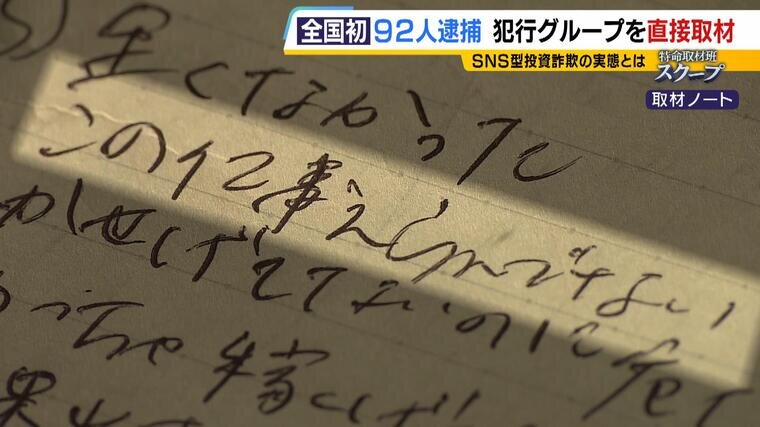 全国初 92人逮捕 犯行グループを直接取材
SNS型投資詐欺の実態とは 特命取材班 スクープ
取材ノート
くなかった
この仕事えらんでない
かせげてないのに
っちゃ稼